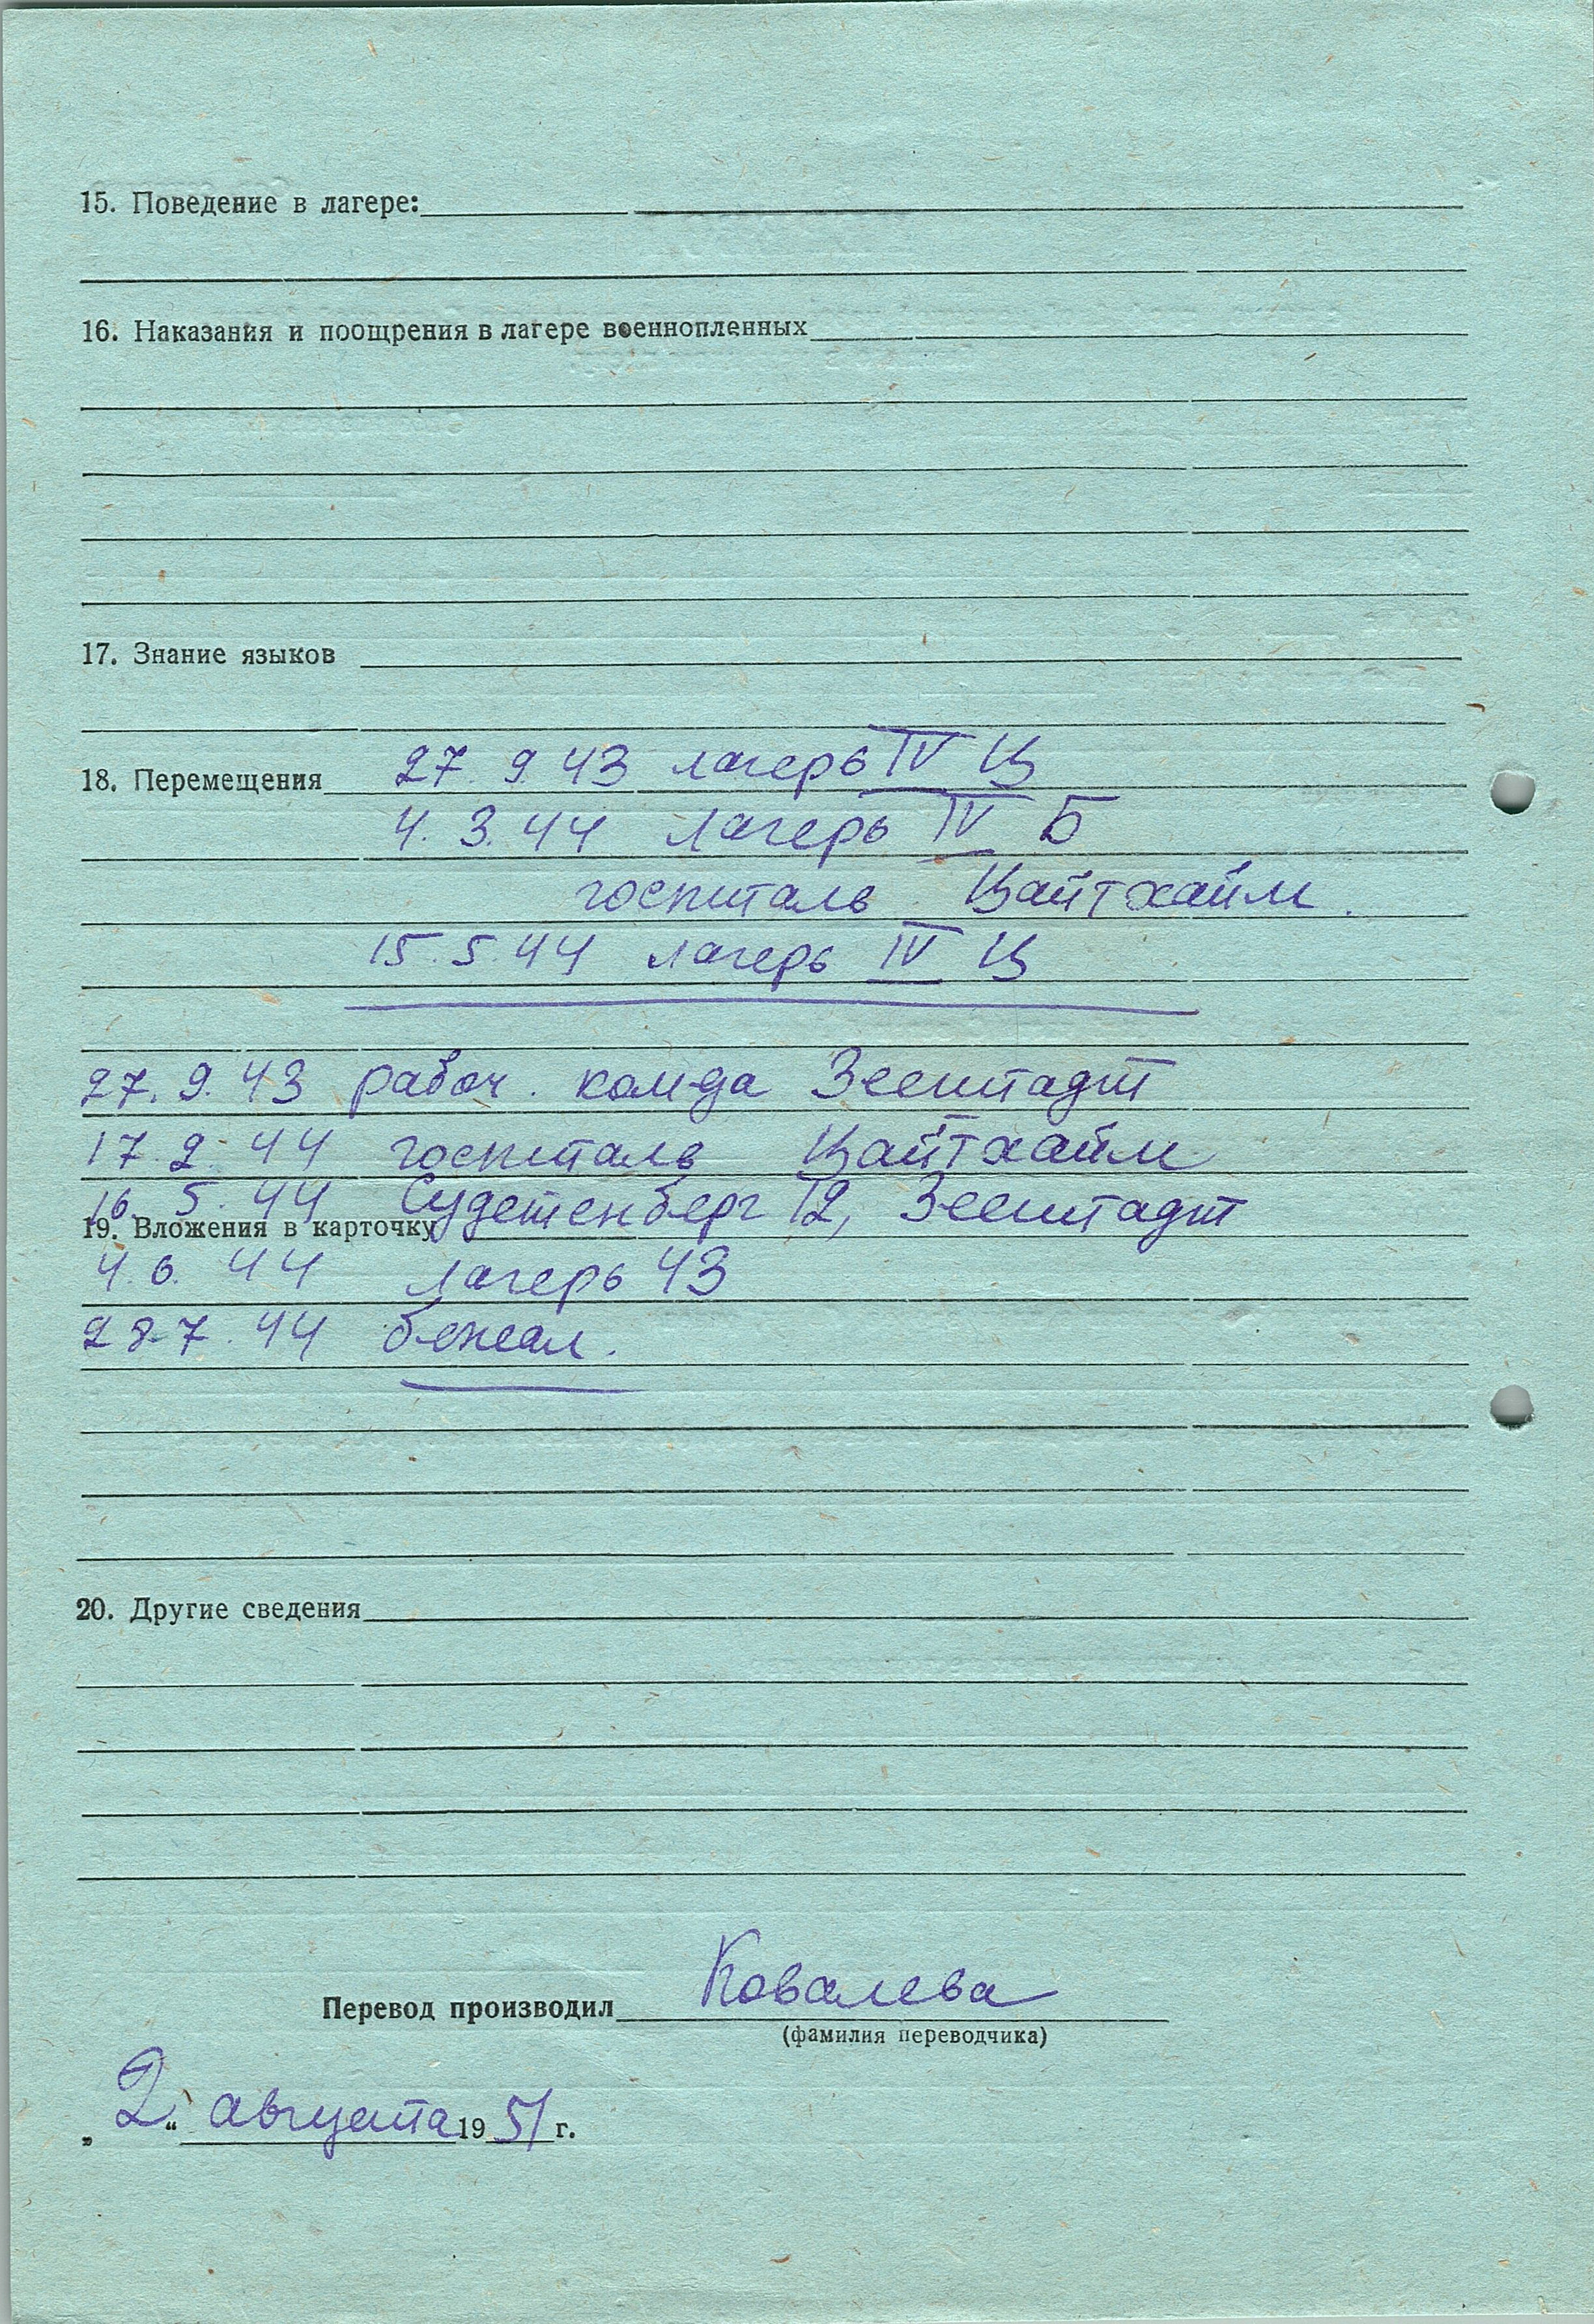 15. Поведение в лагере:
16. Наказания и поощрения в лагере военнопленных
17. Знание языков
18. Перемещения 27.9.43 лагерь IV Ц
4.3.44 лагерь IV Б
госпиталь Цайтхайм.
15.5.44 лагерь IV Ц
27.9.43 рабоч. ком-да Зеештадт
17.2.44 госпиталь Цайтхайм
16.5.44 Судетенберг 12, Зеештадт
19. Вложения в карточку
4.6.44 лагерь 43
28.7.44 бежал.
20. Другие сведения
Перевод производил Ковалева
(фамилия переводчика)
„2“ августа 1951 г.